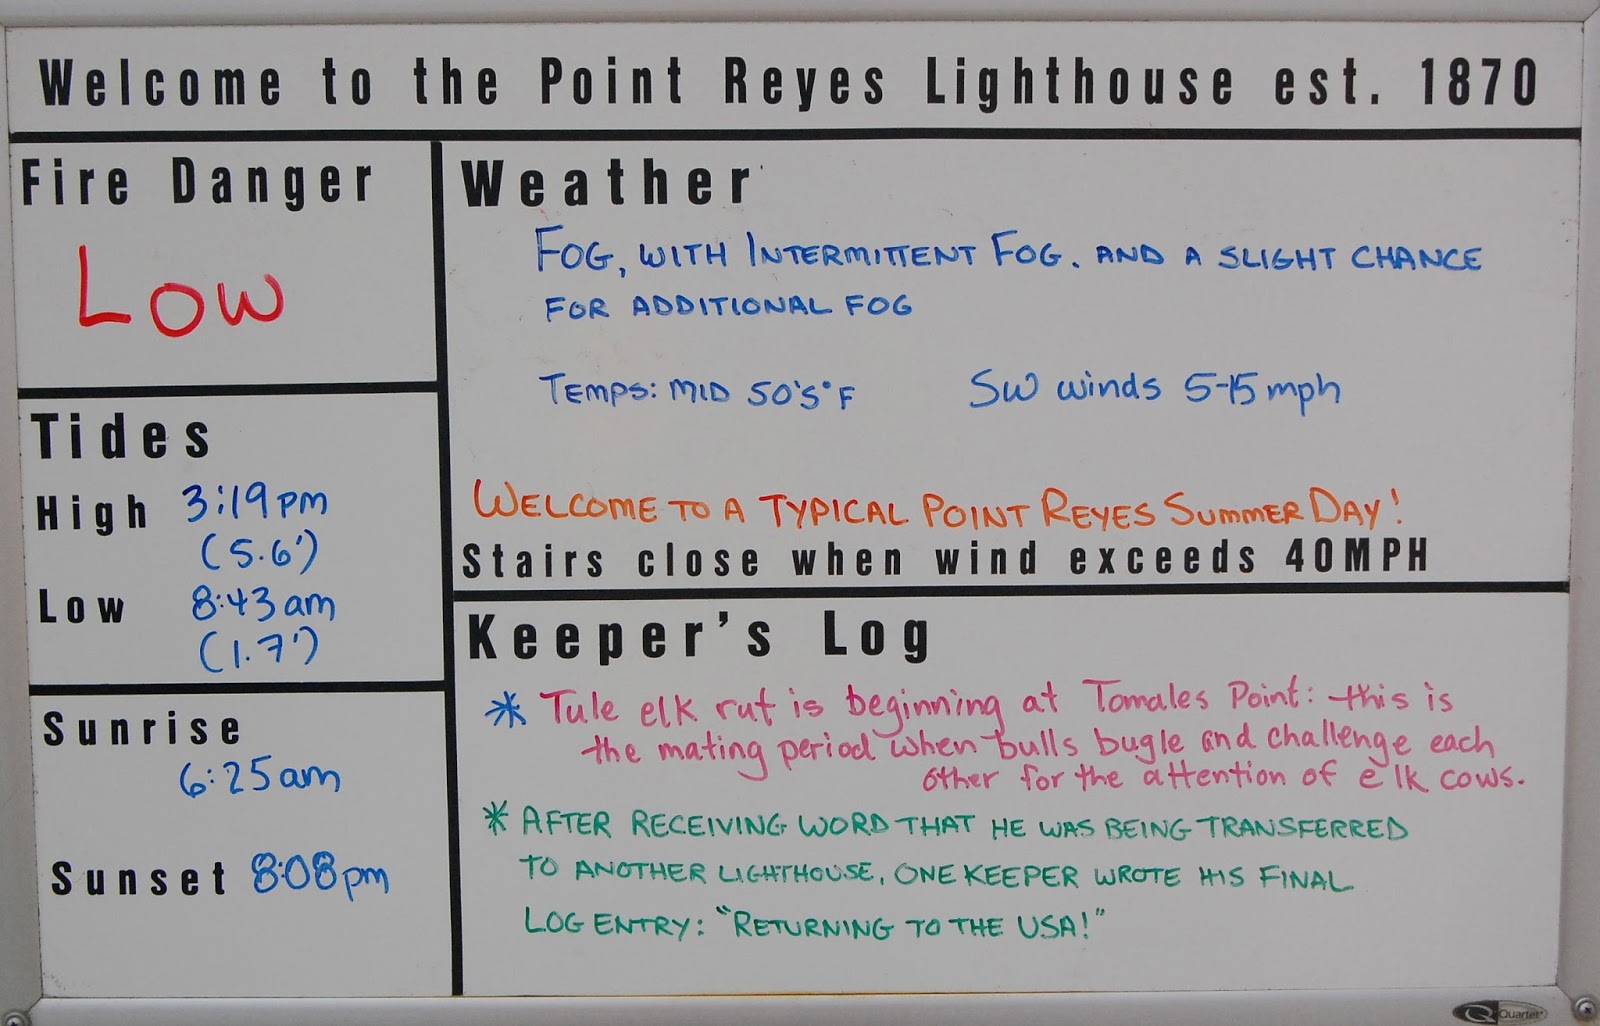 Welcome to the Point Reyes Lighthouse est. 1870
Fire Danger
LOW
Tides
High 3:19pm
(5.6')
Low 8:43am
(1.7')
Sunrise
6:25am
Sunset 8:08pm
Weather
FOG, WITH INTERMITTENT FOG. AND A SLIGHT CHANCE
FOR ADDITIONAL FOG
TEMPS: MID 50'S°F SW winds 5-15mph
WELCOME TO A TYPICAL POINT REYES SUMMER DAY!
Stairs close when wind exceeds 40MPH
Keeper's Log
* Tule elk rut is beginning at Tomales Point: this is
the mating period when bulls bugle and challenge each
other for the attention of elk cows.
* AFTER RECEIVING WORD THAT HE WAS BEING TRANSFERRED
TO ANOTHER LIGHTHOUSE, ONE KEEPER WROTE HIS FINAL
LOG ENTRY: "RETURNING TO THE USA!"
Quartet